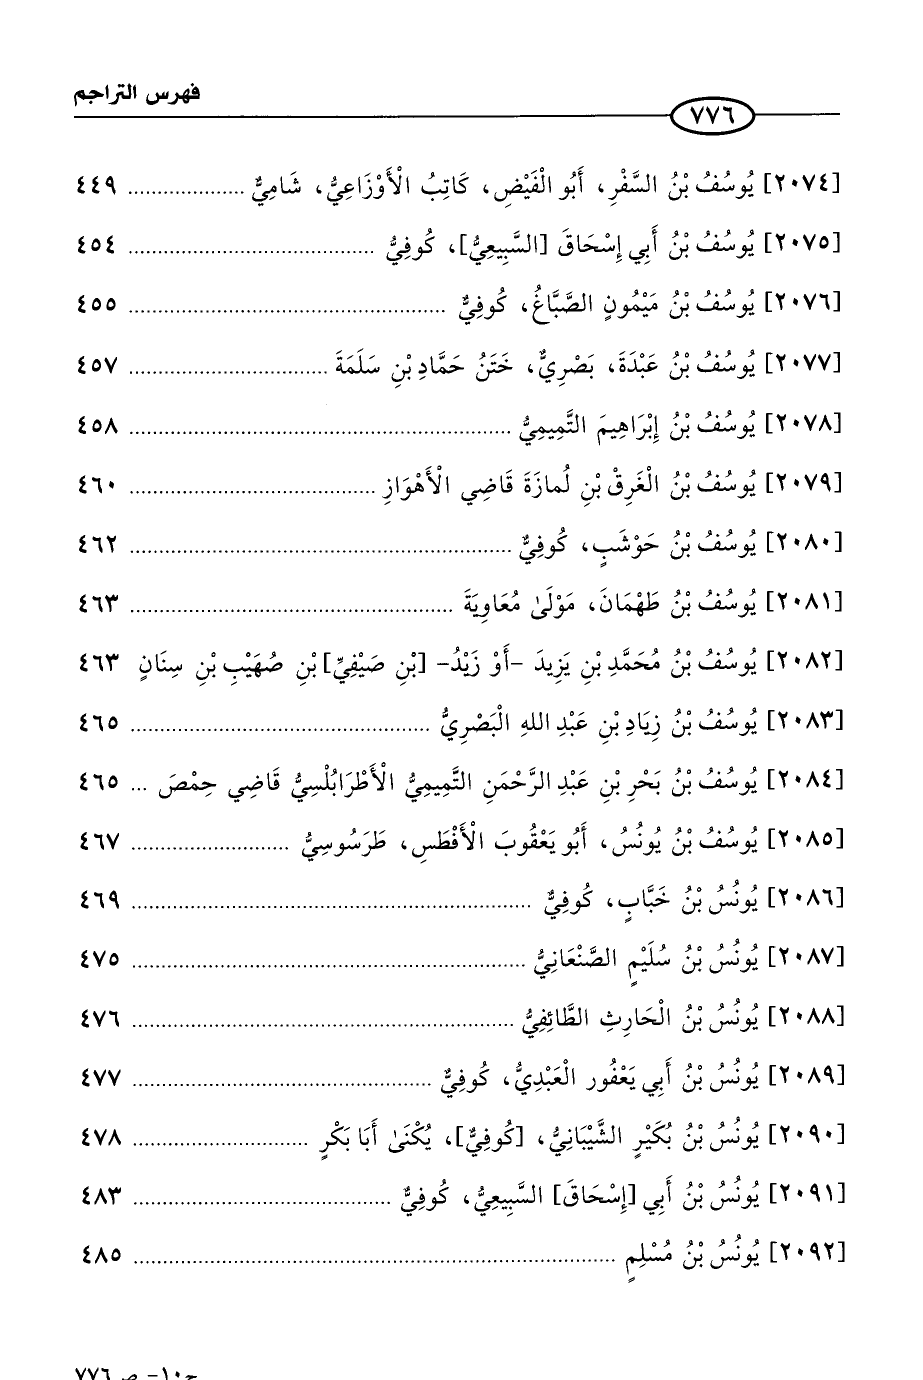 فهرس التراجم
٧٧٦
[٢٠٧٤] يُوسُفُ بْنُ السَّفْرِ، أَبُو الْفَيْضِ، كَاتِبُ الْأَوْزَاعِيُّ، شَامِيٌّ ٤٤٩
[٢٠٧٥] يُوسُفُ بْنُ أَبِي إِسْحَاقَ [السَّبِيعِيُّ]، كُوفِيٌّ ٤٥٤
[٢٠٧٦] يُوسُفُ بْنُ مَيْمُونٍ الصَّبَّاغُ، كُوفِيٌّ ٤٥٥
[٢٠٧٧] يُوسُفُ بْنُ عَبْدَةَ، بَصْرِيٌّ، خَتَنُ حَمَّادِ بْنِ سَلَمَةَ ٤٥٧
[٢٠٧٨] يُوسُفُ بْنُ إِبْرَاهِيمَ التَّمِيمِيُّ ٤٥٨
[٢٠٧٩] يُوسُفُ بْنُ الْغَرِقْ بْنِ لُمازَةَ قَاضِي الْأَهْوَازِ ٤٦٠
[٢٠٨٠] يُوسُفُ بْنُ حَوْشَبٍ، كُوفِيٌّ ٤٦٢
[٢٠٨١] يُوسُفُ بْنُ طَهْمَانَ، مَوْلَىٰ مُعَاوِيَةَ ٤٦٣
[٢٠٨٢] يُوسُفُ بْنُ مُحَمَّدِ بْنِ يَزِيدَ -أَوْ زَيْدُ- [بْنِ صَيْفِيِّ] بْنِ صُهَيْبِ بْنِ سِنَانٍ ٤٦٣
[٢٠٨٣] يُوسُفُ بْنُ زِيَادِ بْنِ عَبْدِ اللهِ الْبَصْرِيُّ ٤٦٥
[٢٠٨٤] يُوسُفُ بْنُ بَحْرِ بْنِ عَبْدِ الرَّحْمَنِ التَّمِيمِيُّ الْأَطْرَابُلْسِيُّ قَاضِي حِمْصَ ... ٤٦٥
[٢٠٨٥] يُوسُفُ بْنُ يُونُسُ، أَبُو يَعْقُوبَ الْأَفْطَسِ، طَرَسُوسِيُّ ٤٦٧
[٢٠٨٦] يُونُسُ بْنُ خَبَّابٍ، كُوفِيٌّ ٤٦٩
[٢٠٨٧] يُونُسُ بْنُ سُلَيْمٍ الصَّنْعَانِيُّ ٤٧٥
[٢٠٨٨] يُونُسُ بْنُ الْحَارِثِ الطَّائِفِيُّ ٤٧٦
[٢٠٨٩] يُونُسُ بْنُ أَبِي يَعْفُور الْعَبْدِيُّ، كُوفِيٌّ ٤٧٧
[٢٠٩٠] يُونُسُ بْنُ بُكَيْرٍ الشَّيْبَانِيُّ، [كُوفِيٌّ]، يُكْنَىٰ أَبَا بَكْرٍ ٤٧٨
[٢٠٩١] يُونُسُ بْنُ أَبِي [إِسْحَاقَ] السَّبِيعِيُّ، كُوفِيٌّ ٤٨٣
[٢٠٩٢] يُونُسُ بْنُ مُسْلِمٍ ٤٨٥
ج١٠- ص٧٧٦